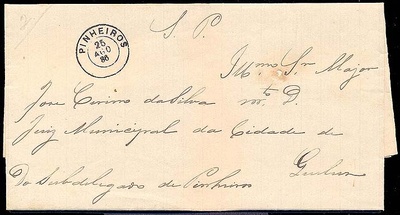 S. P.
PINHEIROS
25
AGO
86
Illmo Snr Major
José Cirino da Silva mto D.
Juiz Municipal da Cidade de
Do Subdelegado de Pinheiros